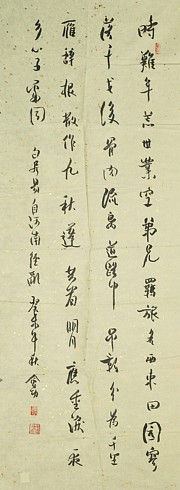 時難年荒世業空弟兄羈旅各西東田園寥
落干戈後骨肉流離道路中吊影分為千里
雁辭根散作九秋蓬共看明月應垂淚一夜
鄉心五處同 白居易自河南經亂 癸未年秋 啟功